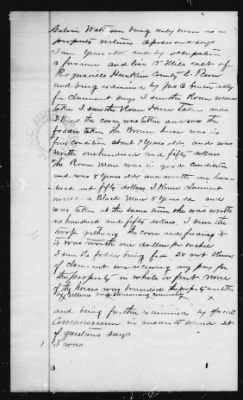 Calvin Watterson being duly sworn as a
property witness deposes and says
I am years old and by occupation
a farmer and live 5 miles east of
Rogersville Hawkins County E. Tenn
and being examined by
for claimant says I saw the Roan mare
taken I saw the Brown Horse taken and
I saw the corn was taken and saw the
fodder taken the Brown horse was in
fine condition about 7 years old and was
worth one hundred and fifty dollars
the Roan Mare was in good condition
and was 8 years old and worth one hun-
dred and fifty dollars I knew claimant
owned a Black Mare 8 years old and
was taken at the same time she was worth
one hundred and fifty dollars. I saw the
troops gathering the corn and feeding it
it was worth one dollar per bushel
I saw the fodder being fed do not know
of claimant ever receiving any pay for
this property in whole or part none
of the Horses were branded
and being further examined by Special
Commissioner in answer to second set
of questions says
I was